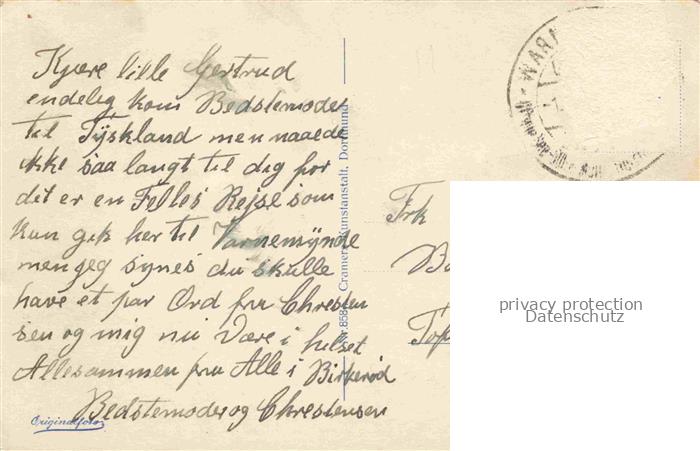 Kjære lille Gertrud
endelig kom Bedstemoder
til Tÿskland men naaede
ikke saa langt til dig for
det er en Felles Rejse som
kun gik her til Varnemÿnde
men jeg synes du skulle
have et par Ord fra Chresten
sen og mig nu Være i hilset
Allesammen fra Alle i Birkerød
Bedstemoder og Chrestensen
Originalfoto
Cramers Kunstanstalt, Dortmund
WAR
Frk
privacy protection
Datenschutz